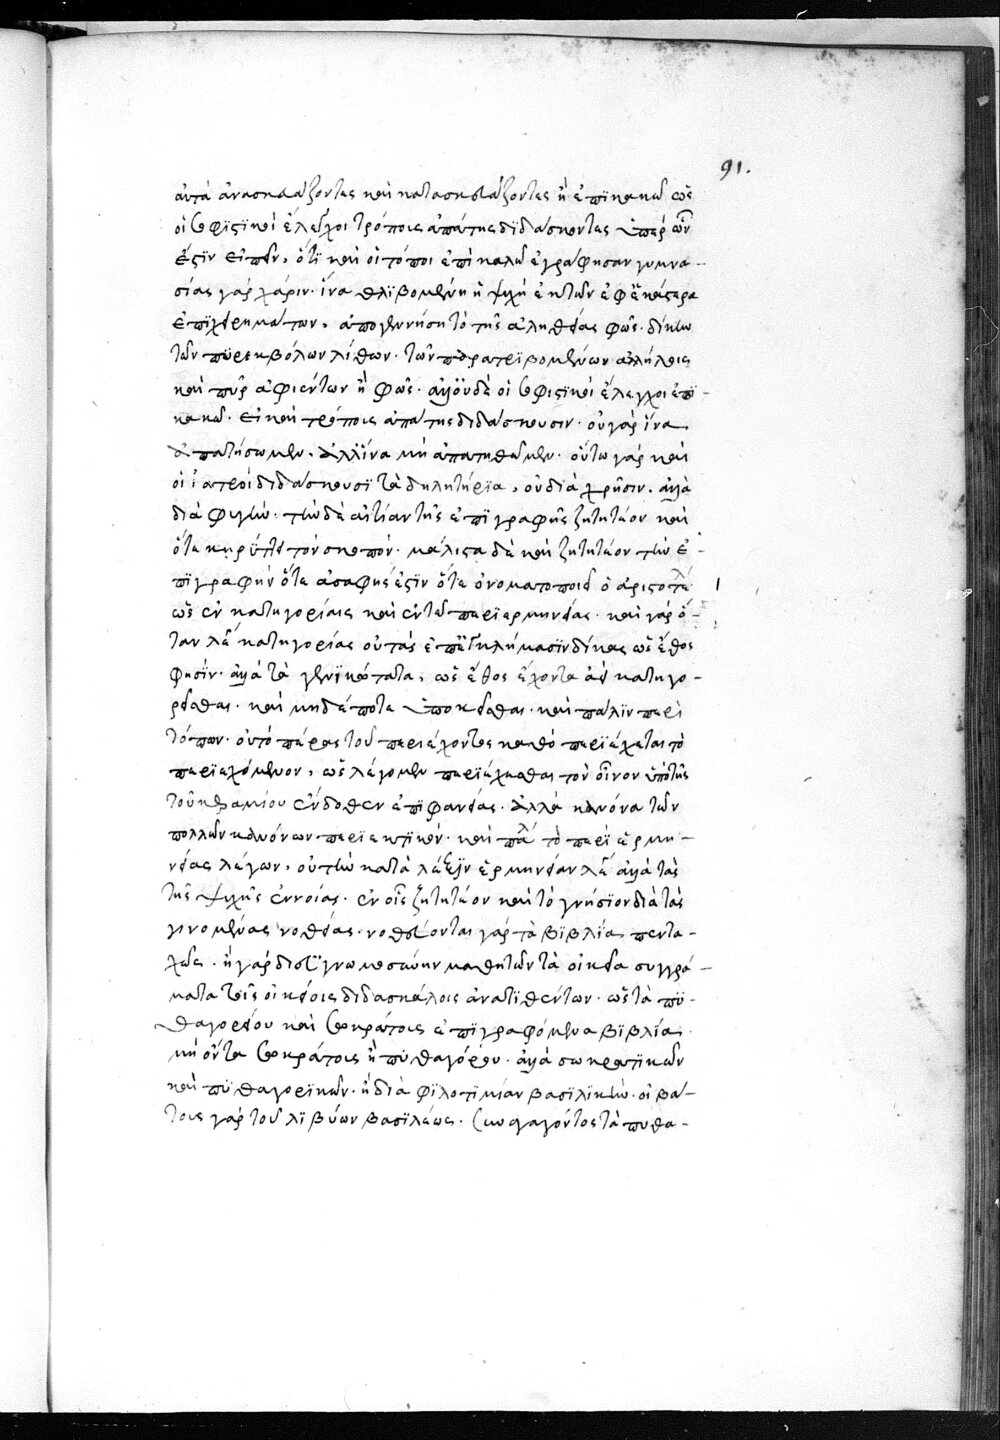 91.
αὐτὰ ἀνασκευάζοντες καὶ κατασκευάζοντες ἢ ἐπὶ κακῶ ὡς
οἱ σοφιστικοὶ ἔλεγχοι τρόποις ἀπάτης διδάσκοντες ὑπὲρ ὧν
ἐστὶν εἰπεῖν, ὅτι καὶ οἱ τόποι ἐπὶ καλῶ ἐγράφησαν γυμνα-
σίας γὰρ χάριν. ἵνα θλιβομένη ἡ ψυχὴ ἐκ τῶν ἐφ ἑκάτερα
ἐπιχειρημάτων, ἀπογεννήση τὸ τῆς ἀληθείας φῶς. δίκην
τῶν πυρεκβόλων λίθων. τῶν παρατριβομένων ἀλλήλοις
καὶ πῦρ ἀφιέντων ἢ φῶς. ἀλλ' οὐδὲ οἱ σοφιστικοὶ ἔλεγχοι ἐπὶ
κακῶ. εἰ καὶ τρόποις ἀπάτης διδάσκουσιν. οὐ γὰρ ἵνα
ἀπατήσωμεν. ἀλλ' ἵνα μὴ ἀπατηθῶμεν. οὕτω γὰρ καὶ
οἱ ἰατροὶ διδάσκουσι τὰ δηλητήρια, οὐ διὰ χρῆσιν. ἀλλὰ
διὰ φυγήν. τὴν δὲ αἰτίαν τῆς ἐπιγραφῆς ζητητέον καὶ
ὅτε κηρύττει τὸν σκοπόν. μάλιστα δὲ καὶ ζητητέον τὴν ἐ-
πιγραφὴν ὅτε ἀσαφής ἐστιν ὅτε ὀνοματοποιεῖ ὁ ἀριστοτέλ
ὡς ἐν κατηγορίαις καὶ ἐν τῶ περὶ ἑρμηνείας. καὶ γὰρ ὅ-
ταν λέγ κατηγορίας οὐ τὰς ἐπ ἐγκλήμασιν δίκας ὡς ἔθος
φησίν. ἀλλὰ τὰ γενικώτατα, ὡς ἔθος ἔχοντα ἀεὶ κατηγο-
ρεῖσθαι. καὶ μηδέποτε ὑποκεῖσθαι. καὶ πάλιν περὶ
τόπων. οὐ τὸ πέρας τοῦ περιέχοντος καθὸ περιέχεται τὸ
περιεχόμενον, ὡς λέγομεν περιέχεσθαι τὸν οἶνον ὑπὸ τῆς
τοῦ κεραμίου ἔνδοθεν ἐπιφανείας. ἀλλὰ κανόνα τῶν
πολλῶν κανόνων περιεκτικόν. καὶ πάλ τὸ περὶ ἑρμη-
νείας λέγων, οὐ τὴν κατὰ λέξιν ἑρμηνείαν λέγ ἀλλὰ τὰς
τῆς ψυχῆς ἐννοίας. ἐν οἷς ζητητέον καὶ τὸ γνήσιον διὰ τὰς
γινομένας νοθείας. νοθεύονται γὰρ τὰ βιβλία πεντα-
χῶς. ἢ γὰρ δι' εὐγνωμοσύνην μαθητῶν τὰ οἰκεῖα συγγρά-
ματα τοῖς οἰκείοις διδασκάλοις ἀνατιθέντων. ὡς τὰ πυ-
θαγορείου καὶ σωκράτοις ἐπιγραφόμενα βιβλία.
μὴ ὄντα σωκράτοις ἢ πυθαγόρου. ἀλλὰ σωκρατικῶν
καὶ πυθαγορικῶν. ἢ διὰ φιλοτιμίαν βασιλικήν. οἱ βά-
τοις γὰρ τοῦ λιβύων βασιλέως. συναγαγόντος τὰ πυθα-